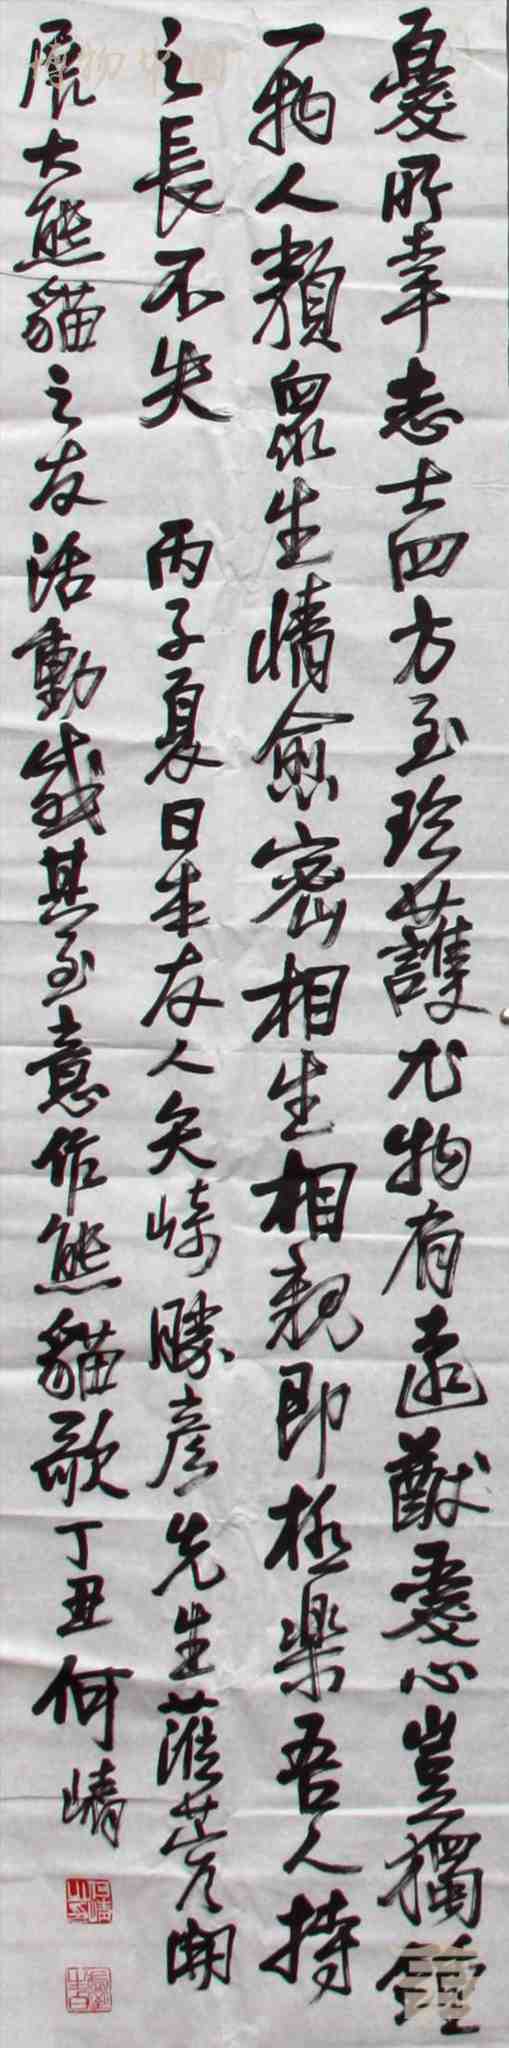 憂所幸志士四方至珍護尤物有遠猷愛心豈獨鍾
一物人類眾生情愈密相生相親即極樂吾人持
之長不失 丙子夏日本友人矢崎勝彥先生蒞蓉開
展大熊貓之友活動感其至意作熊貓歌丁丑何崝
博物中国